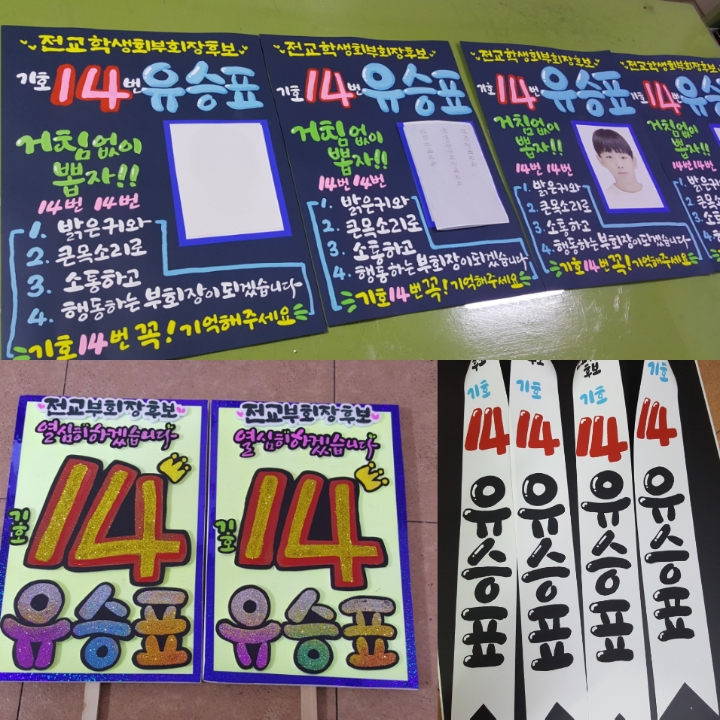 전교학생회부회장후보
기호 14번 유승표
거침없이
뽑자!!
14번 14번
1. 밝은귀와
2. 큰목소리로
3. 소통하고
4. 행동하는 부회장이되겠습니다
기호14번 꼭! 기억해주세요
전교학생회부회장후보
기호 14번 유승표
거침없이
뽑자!!
14번 14번
1. 밝은귀와
2. 큰목소리로
3. 소통하고
4. 행동하는 부회장이되겠습니다
기호14번 꼭! 기억해주세요
전교학생회부회장후보
기호 14번 유승표
거침없이
뽑자!!
14번 14번
1. 밝은귀와
2. 큰목소리로
3. 소통하고
4. 행동하는 부회장이되겠습니다
기호14번 꼭! 기억해주세요
전교학생회부
기호 14번 유승
거침없이
뽑자!!
14번 14
1. 밝은귀
2. 큰목소
3. 소통하
4. 행동하
전교부회장후보
열심히하겠습니다
기호 14
유승표
전교부회장후보
열심히하겠습니다
기호 14
유승표
기호
14
유승표
기호
14
유승표
후보
기호
14
유승표
기호
14
유승표